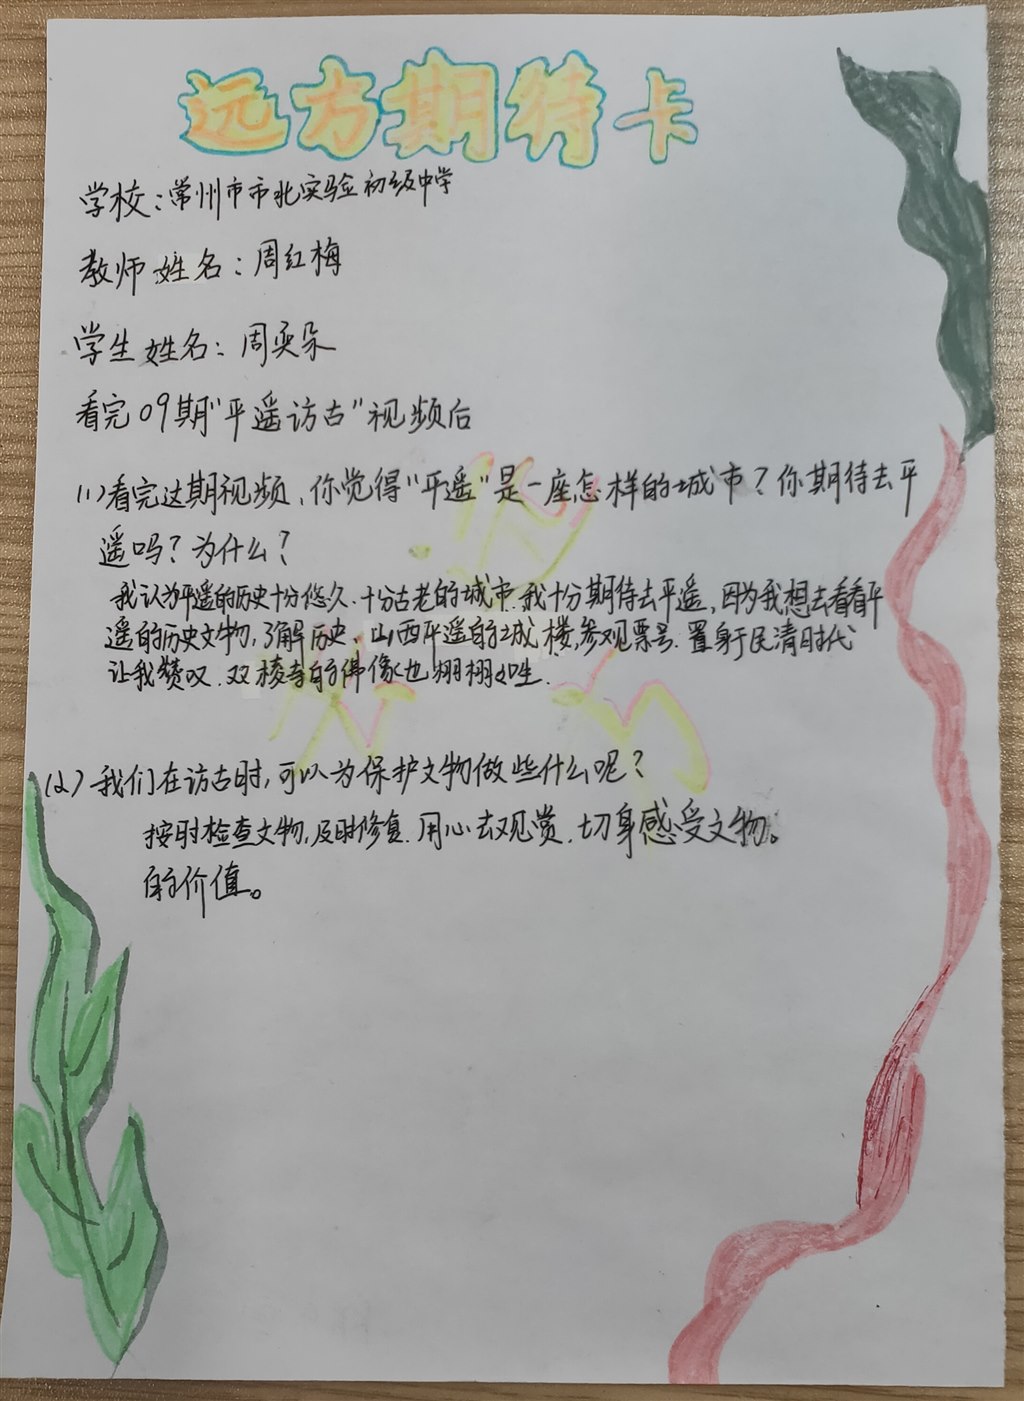 远方期待卡
学校：常州市市北实验初级中学
教师姓名：周红梅
学生姓名：周奕朵
看完09期"平遥访古"视频后
(1)看完这期视频，你觉得"平遥"是一座怎样的城市？你期待去平
遥吗？为什么？
我认为平遥的历史十分悠久、十分古老的城市.我十分期待去平遥,因为我想去看看平
遥的历史文物,了解历史、山西平遥的城楼,参观票号.置身于民清时代
让我赞叹.双棱寺的佛像也栩栩如生.
(2)我们在访古时,可以为保护文物做些什么呢？
按时检查文物,及时修复.用心去观赏.切身感受文物。
的价值。